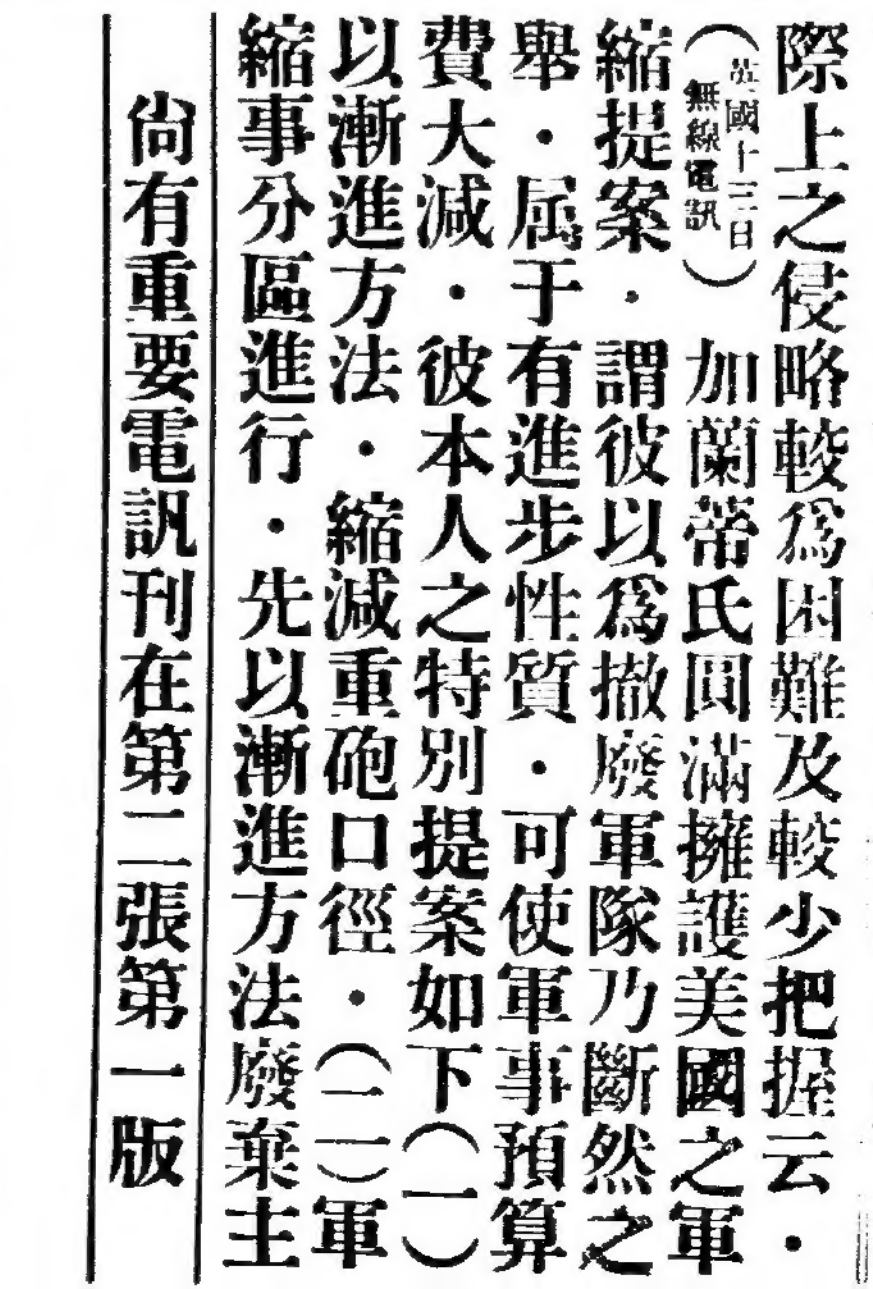 際上之侵略較爲困難及較少把握云・
（英國十三日無線電訊）加蘭蒂氏圓滿擁護美國之軍
縮提案・謂彼以爲撤廢軍隊乃斷然之
舉・属于有進步性質・可使軍事預算
費大減・彼本人之特別提案如下（一）
以漸進方法・縮減重砲口徑・（二）軍
縮事分區進行・先以漸進方法廢棄主
尙有重要電訊刊在第二張第一版